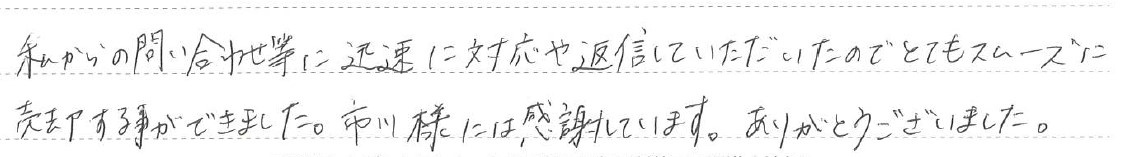 私からの問い合わせ等に迅速に対応や返信していただいたのでとてもスムーズに
売却する事ができました。市川様には感謝しています。ありがとうございました。